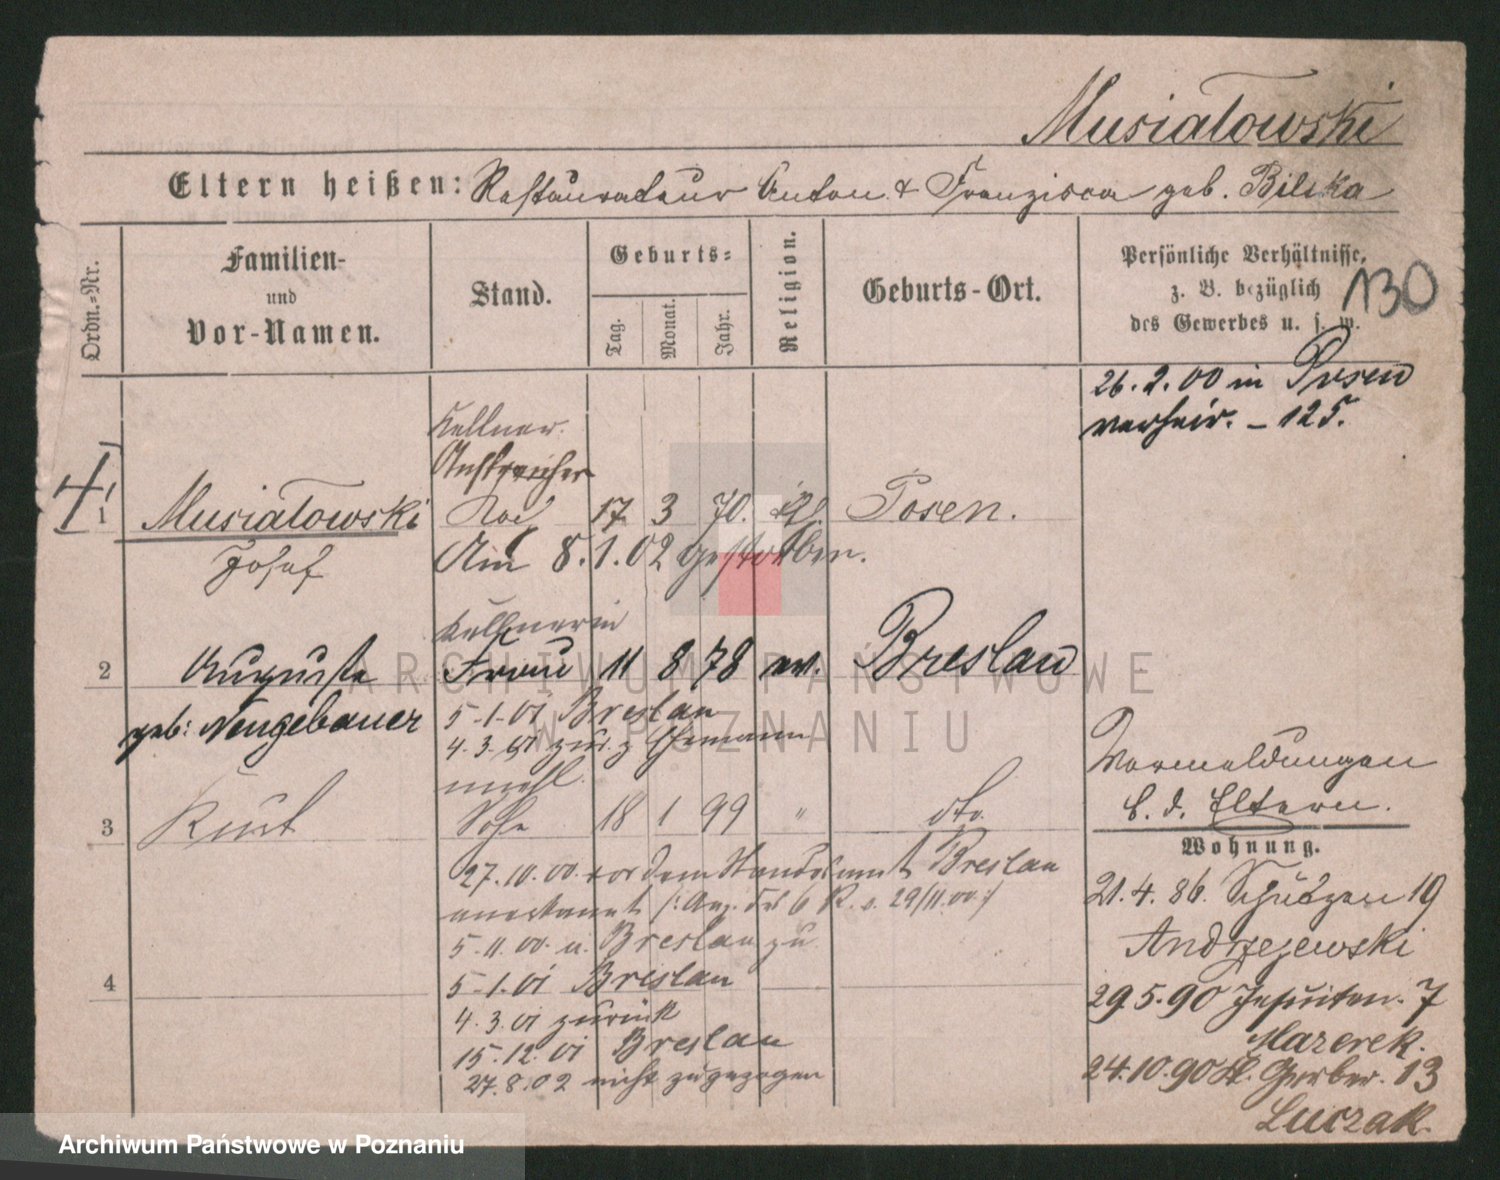 Musiatowski
Eltern heißen: Restaurateur Anton & Franzisca geb. Bilska
Ordn.=Nr.
Familien-
und
Vor-Namen.
Stand.
Geburts=
Tag.
Monat.
Jahr.
Religion.
Geburts-Ort.
Persönliche Verhältnisse,
z. B. bezüglich
des Gewerbes u. s. w.
130
26.2.00 in Posen
verheir. – 125.
Kellner.
Anstreicher
1 Musiatowski 17 3 70. Posen.
Josef
Am 8.1.02 gestorben.
Kellnerin
2 Auguste Frau 11 8 78 ev. Breslau
geb: Neugebauer
5-1-01 Breslau
4.3.01 zur. z Ehemann
3 Kurt Sohn 18 1 99 " dto.
27.10.00. vor dem Standesamt Breslau
anerkannt
5.11.00. n. Breslau zu
4
5-1.01 Breslau
4.3.01 zurück
15.12.01 Breslau
27.8.02 nicht zugezogen
Vormeldungen
b. d. Eltern.
Wohnung.
21.4.86. Schützen 19
Andrzejewski
29.5.90 Jesuiten. 7
Mazerek.
24.10.90 Kl. Gerber. 13
Luczak.
ARCHIWUM PAŃSTWOWE
W POZNANIU
Archiwum Państwowe w Poznaniu